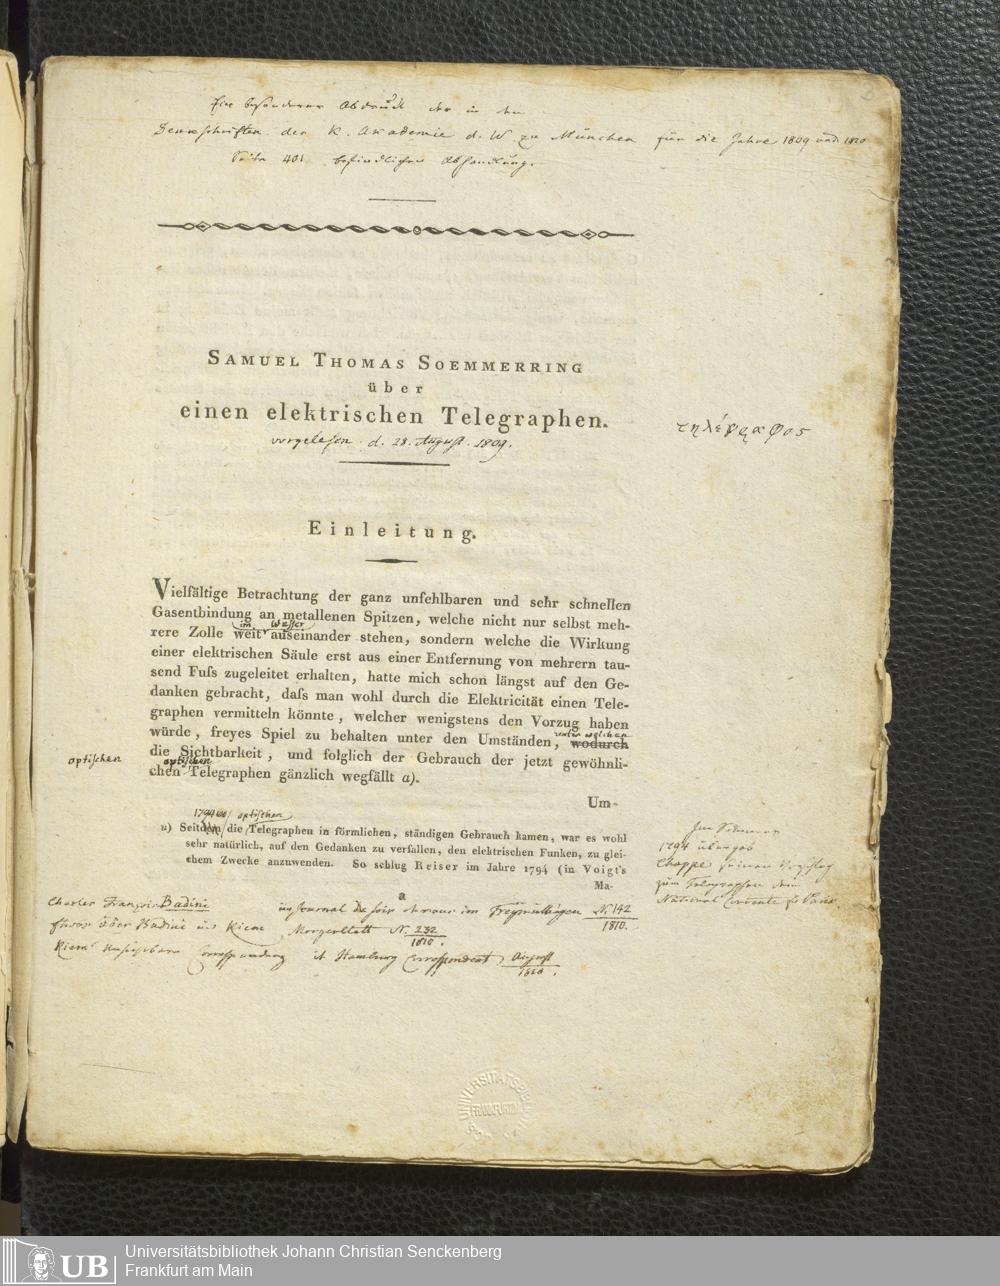 Ein besonderer Abdruck der in den
Denkschriften der K. Akademie d. W. zu München für die Jahre 1809 und 1810
Seite 401 befindlichen Abhandlung.
SAMUEL THOMAS SOEMMERRING
über
einen elektrischen Telegraphen.
vorgelesen d. 28. August 1809.
τηλέγραφος
Einleitung.
Vielfältige Betrachtung der ganz unfehlbaren und sehr schnellen
Gasentbindung an metallenen Spitzen, welche nicht nur selbst meh-
im Wasser
rere Zolle weit auseinander stehen, sondern welche die Wirkung
einer elektrischen Säule erst aus einer Entfernung von mehrern tau-
send Fuſs zugeleitet erhalten, hatte mich schon längst auf den Ge-
danken gebracht, daſs man wohl durch die Elektricität einen Tele-
graphen vermitteln könnte, welcher wenigstens den Vorzug haben
unter welchen
würde, freyes Spiel zu behalten unter den Umständen, wodurch
die Sichtbarkeit, und folglich der Gebrauch der jetzt gewöhnli-
optischen optischen
chen Telegraphen gänzlich wegfällt a).
Um-
1794 optischen
a) Seitdem die Telegraphen in förmlichen, ständigen Gebrauch kamen, war es wohl
sehr natürlich, auf den Gedanken zu verfallen, den elektrischen Funken, zu glei-
chem Zwecke anzuwenden. So schlug Reiser im Jahre 1794 (in Voigt's
Ma-
a
Im Sommer
1794 übergab
Chappe seinen Vorschlag
zum Telegraphen dem
National Convente zu Paris.
Charles François Badini im Journal du soir im Freymüthigen N. 142
1810.
über Badini und Morgenblatt N. 232
1810.
Correspondenz Hamburg Correspondent August
1810.
UNIVERSITÄTSBIBLIOTHEK
FRANKFURT
UB
Universitätsbibliothek Johann Christian Senckenberg
Frankfurt am Main